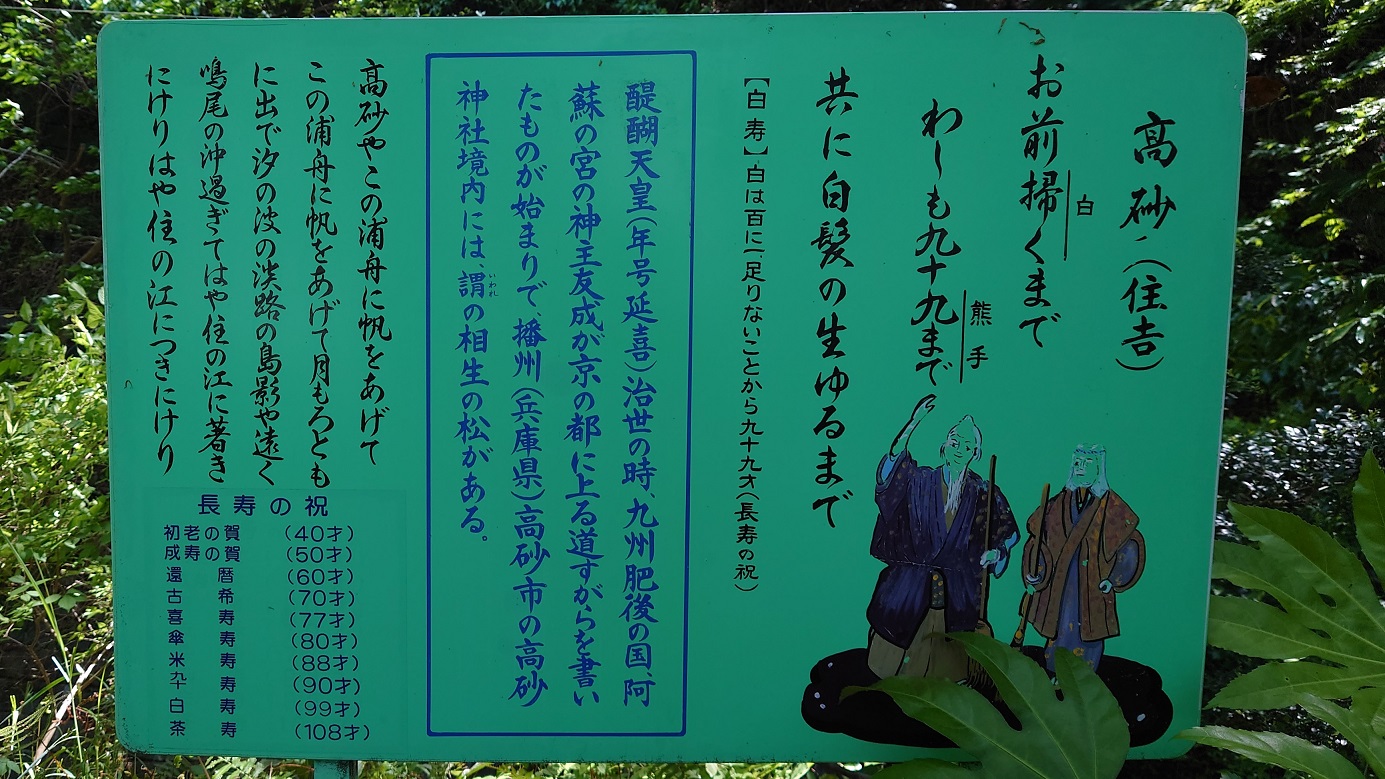 高砂(住吉)
お前掃くまで
白
わしも九十九まで
熊手
共に白髪の生ゆるまで
【白寿】白は百に一足りないことから九十九才(長寿の祝)
醍醐天皇(年号延喜)治世の時、九州肥後の国、阿
蘇の宮の神主友成が京の都に上る道すがらを書い
たものが始まりで、播州(兵庫県)高砂市の高砂
神社境内には、謂の相生の松がある。
いわれ
高砂やこの浦舟に帆をあげて
この浦舟に帆をあげて月もろとも
に出で汐の波の淡路の島影や遠く
鳴尾の沖過ぎてはや住の江に着き
にけりはや住の江につきにけり
長寿の祝
初老の賀 (40才)
成寿の賀 (50才)
還暦 (60才)
古希 (70才)
喜寿 (77才)
傘寿 (80才)
米寿 (88才)
卆寿 (90才)
白寿 (99才)
茶寿 (108才)